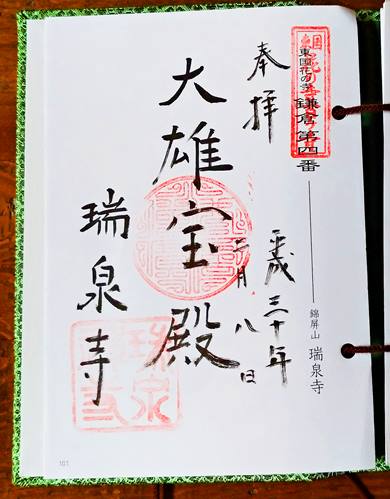 東国花の寺 鎌倉 第四番
錦屏山 瑞泉寺
奉拝
平成三十年
二月八日
大雄宝殿
瑞泉寺
101